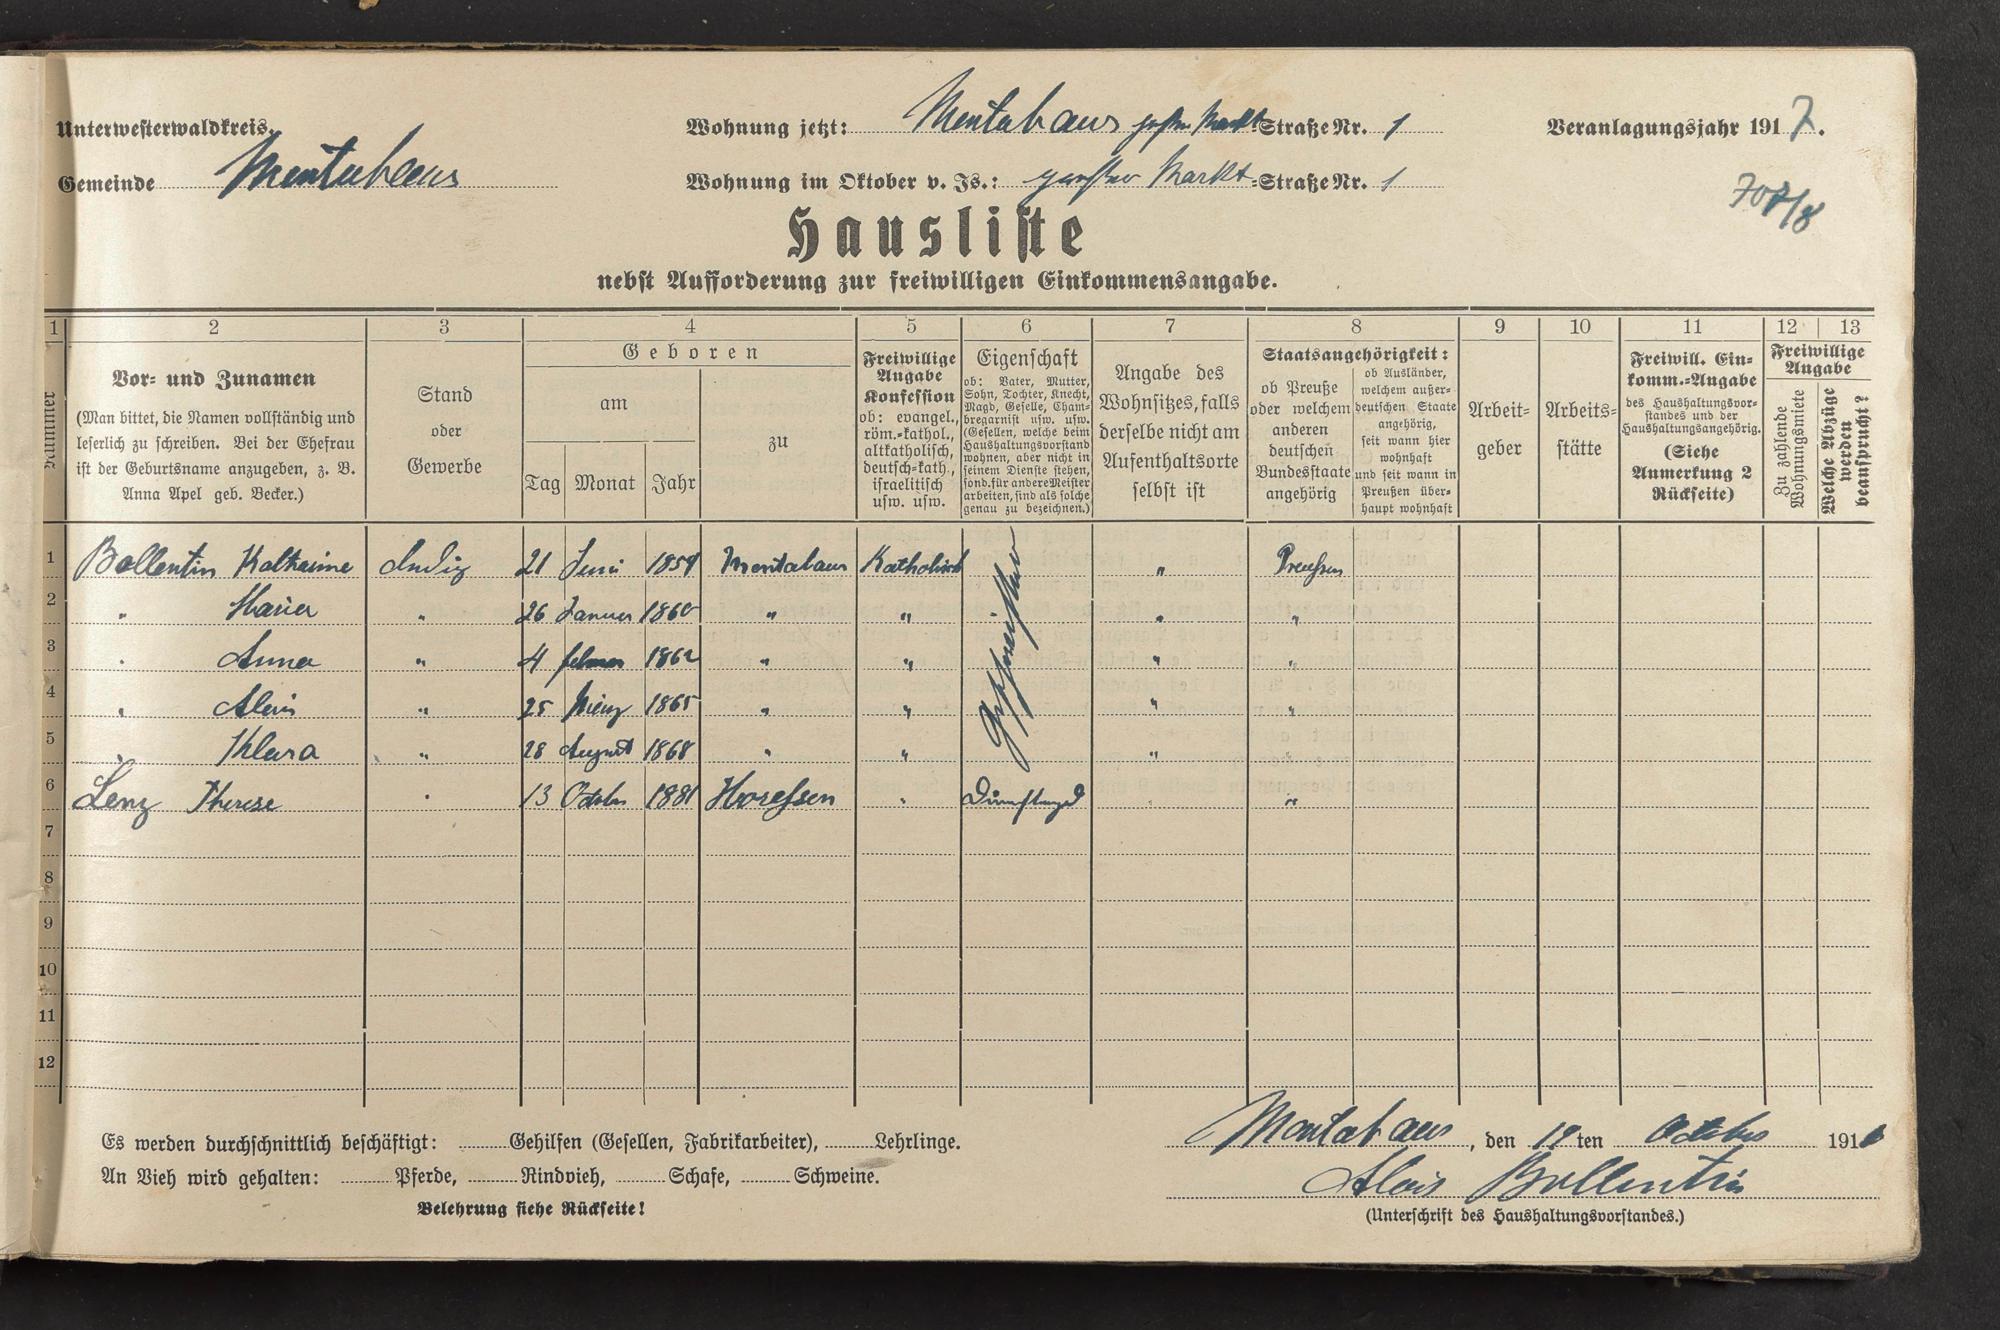 Unterwesterwaldkreis.
Gemeinde Montabaur
Wohnung jetzt: Montabaur großer Markt Straße Nr. 1
Wohnung im Oktober v. Js.: großer Markt-Straße Nr. 1
Veranlagungsjahr 1917.
Hausliste
nebst Aufforderung zur freiwilligen Einkommensangabe.
1 2 3 4 5 6 7 8 9 10 11 12 13
Nummer
Vor- und Zunamen
(Man bittet, die Namen vollständig und
leserlich zu schreiben. Bei der Ehefrau
ist der Geburtsname anzugeben, z. B.
Anna Apel geb. Becker.)
Stand
oder
Gewerbe
Geboren
am
Tag Monat Jahr
zu
Freiwillige
Angabe
Konfession
ob: evangel.,
röm.-kathol.,
altkatholisch,
deutsch-kath.,
israelitisch
usw. usw.
Eigenschaft
ob: Vater, Mutter,
Sohn, Tochter, Knecht,
Magd, Geselle, Cham-
bregarnist usw. usw.
(Gesellen, welche beim
Haushaltungsvorstand
wohnen, aber nicht in
seinem Dienste stehen,
sond. für andere Meister
arbeiten, sind als solche
genau zu bezeichnen.)
Angabe des
Wohnsitzes, falls
derselbe nicht am
Aufenthaltsorte
selbst ist
Staatsangehörigkeit:
ob Preuße
oder welchem
anderen
deutschen
Bundesstaate
angehörig
ob Ausländer,
welchem außer-
deutschen Staate
angehörig,
seit wann hier
wohnhaft
und seit wann in
Preußen über-
haupt wohnhaft
Arbeit-
geber
Arbeits-
stätte
Freiwill. Ein-
komm.-Angabe
des Haushaltungsvor-
standes und der
Haushaltungsangehörig.
(Siehe
Anmerkung 2
Rückseite)
Freiwillige
Angabe
Zu zahlende
Wohnungsmiete
Welche Abzüge
werden
beansprucht?
1 Bollentin Katharine ledig 21 Juni 1859 Montabaur Katholisch Geschwister " Preußen
2 " Maria " 26 Januar 1860 " " " "
3 " Anna " 4 Februar 1862 " " " "
4 " Alois " 25 März 1865 " " " "
5 " Klara " 28 August 1868 " " " "
6 Lenz Therese " 13 October 1881 Horessen " Dienstmagd " "
7
8
9
10
11
12
Es werden durchschnittlich beschäftigt: Gehilfen (Gesellen, Fabrikarbeiter), Lehrlinge.
An Vieh wird gehalten: Pferde, Rindvieh, Schafe, Schweine.
Belehrung siehe Rückseite!
Montabaur, den 19ten October 1916
Alois Bollentin
(Unterschrift des Haushaltungsvorstandes.)